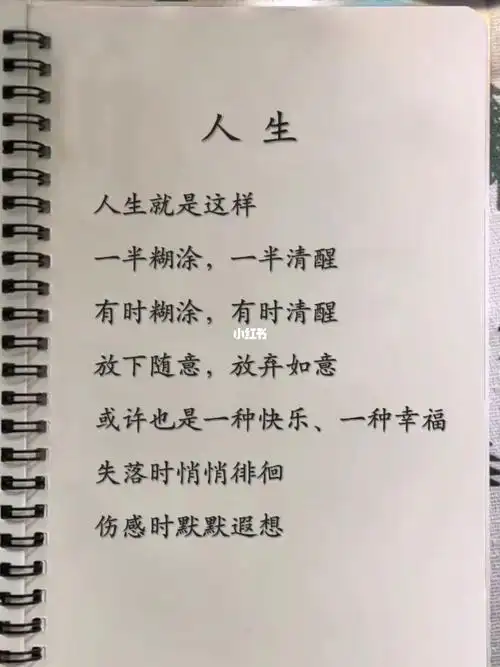 人生
人生就是这样
一半糊涂，一半清醒
有时糊涂，有时清醒
小红书
放下随意，放弃如意
或许也是一种快乐、一种幸福
失落时悄悄徘徊
伤感时默默遐想